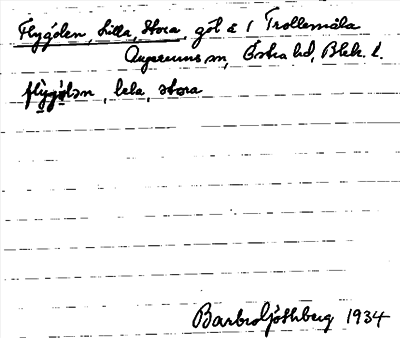 Flygölen, Lilla, Stora, göl å 1 Trollemåla
Augerums sn, Östra hd, Blek. l.
flỳgö̀lən, lela, stora
Barbro Ljothberg 1934